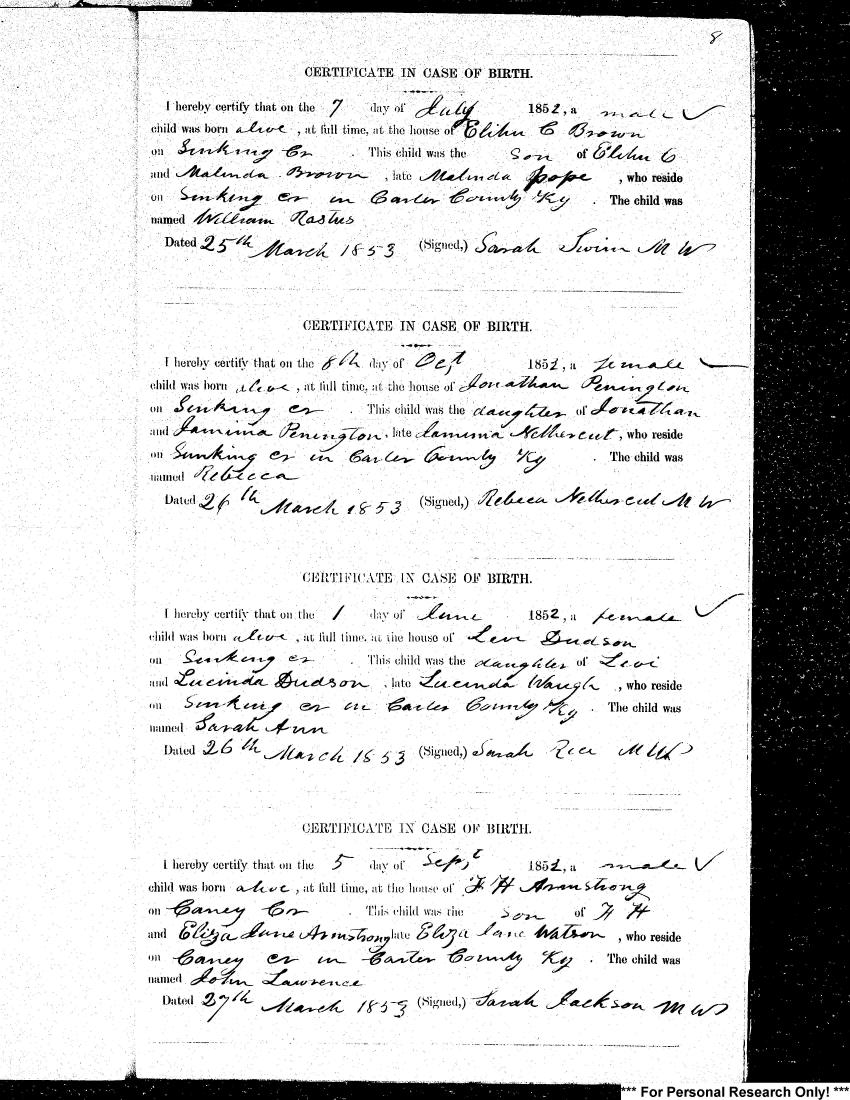 8
CERTIFICATE IN CASE OF BIRTH.
I hereby certify that on the 7 day of July 1852, a male
child was born alive, at full time, at the house of Elihu C Brown
on Sinking Cr. This child was the Son of Elihu C
and Malinda Brown, late Malinda pope, who reside
on Sinking cr in Carter County Ky. The child was
named William Rastus
Dated 25th March 1853 (Signed,) Sarah Swim M W
CERTIFICATE IN CASE OF BIRTH.
I hereby certify that on the 8th day of Oct 1852, a female
child was born alive, at full time, at the house of Jonathan Penington
on Sinking cr. This child was the daughter of Jonathan
and Jamima Penington, late Jamima Nethercut, who reside
on Sinking cr in Carter County Ky. The child was
named Rebecca
Dated 26th March 1853 (Signed,) Rebeca Nethercut M W
CERTIFICATE IN CASE OF BIRTH.
I hereby certify that on the 1 day of June 1852, a female
child was born alive, at full time, at the house of Levi Dudson
on Sinking cr. This child was the daughter of Levi
and Lucinda Dudson, late Lucinda Waugh, who reside
on Sinking cr in Carter County Ky. The child was
named Sarah Ann
Dated 26th March 1853 (Signed,) Sarah Rice M W
CERTIFICATE IN CASE OF BIRTH.
I hereby certify that on the 5 day of Sept 1852, a male
child was born alive, at full time, at the house of F H Armstrong
on Caney Cr. This child was the Son of F H
and Eliza Jane Armstrong late Eliza Jane Watson, who reside
on Caney cr in Carter County Ky. The child was
named John Lawrence
Dated 27th March 1853 (Signed,) Sarah Jackson M W
*** For Personal Research Only! ***